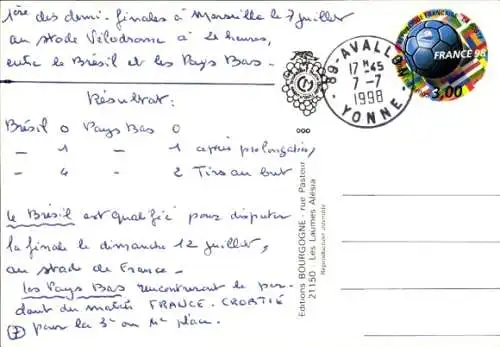 1ère des demi-finales à Marseille le 7 juillet
au stade Vélodrome à 21 heures,
entre le Brésil et les Pays Bas -
Résultat :
Brésil 0 Pays Bas 0
- 1 - 1 après prolongation
- 4 - 2 Tirs au but
le Brésil est qualifié pour disputer
la finale le dimanche 12 juillet,
au stade de France -
les Pays Bas rencontreront le per-
dant du match FRANCE - CROATIE
pour la 3e ou 4e place.
7
89 - AVALLON
17 H 45
7 - 7
1998
YONNE
FRANCE 98
3,00
Editions BOURGOGNE - rue Pasteur
21150 - Les Laumes Alésia
Reproduction interdite